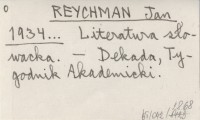 REYCHMAN Jan
1934... Literatura sło-
wacka. — Dekada, Ty-
godnik Akademicki.
1868